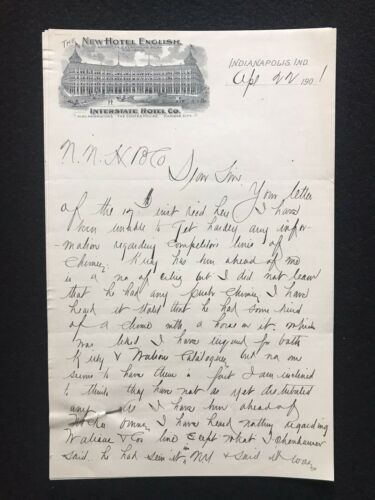 THE NEW HOTEL ENGLISH.
INTERSTATE HOTEL CO.
INDIANAPOLIS, IND
Apl 22 1901
N. N. H B Co
Dear Sir
Your letter
of the 19 inst recd here I have
been unable to get hardly any infor-
mation regarding Competitors lines of
King has been ahead of me
in a no of cities but I did not learn
that he had any I have
heard it stated that he had some kind
of a with a horse on it. which
was liked I have inquired for both
King & Wallace Catalogues but no one
seems to have them in fact I am inclined
to think they have not as yet distributed
any I have been ahead of
I have heard nothing regarding
Wallace & Co line Except what
said. he had seen it in NY & said it was